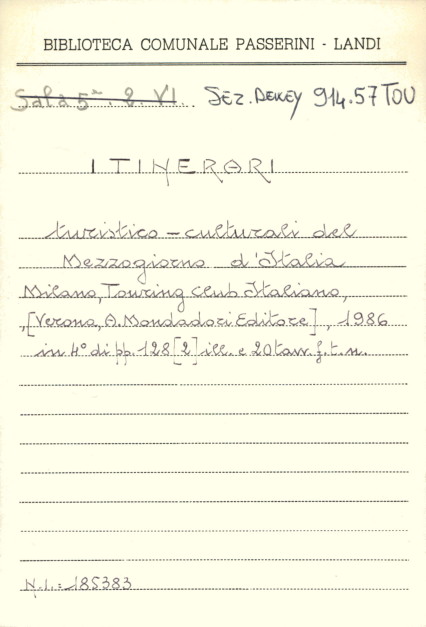 BIBLIOTECA COMUNALE PASSERINI - LANDI
Sala 5ª. 2. VI. SEZ. DEWEY 914.57 TOU
ITINERARI
turistico-culturali del
Mezzogiorno d'Italia
Milano, Touring Club Italiano,
,[Verona, A. Mondadori Editore], 1986
in 4° di pp. 128 [2] ill. e 20 tavv. f. t. n.
N.I.: 185383